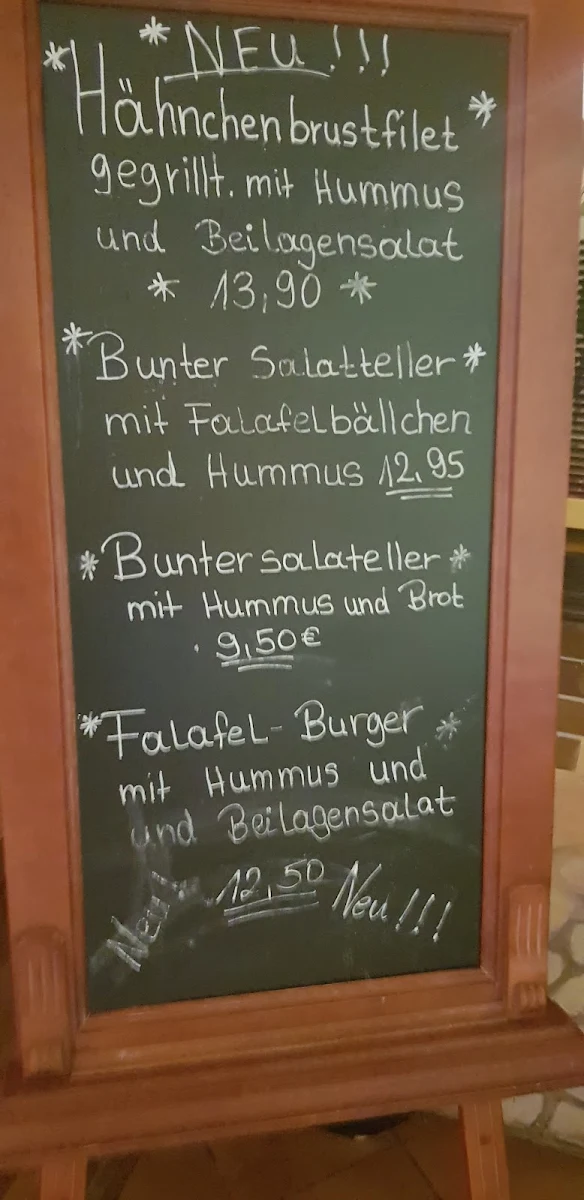 * NEU!!!
* Hähnchenbrustfilet *
gegrillt. mit Hummus
und Beilagensalat
* 13,90 *
* Bunter Salatteller *
mit Falafelbällchen
und Hummus 12.95
* Bunter salateller *
mit Hummus und Brot
9,50€
* Falafel-Burger *
mit Hummus und
und Beilagensalat
Neu! 12,50 Neu!!!